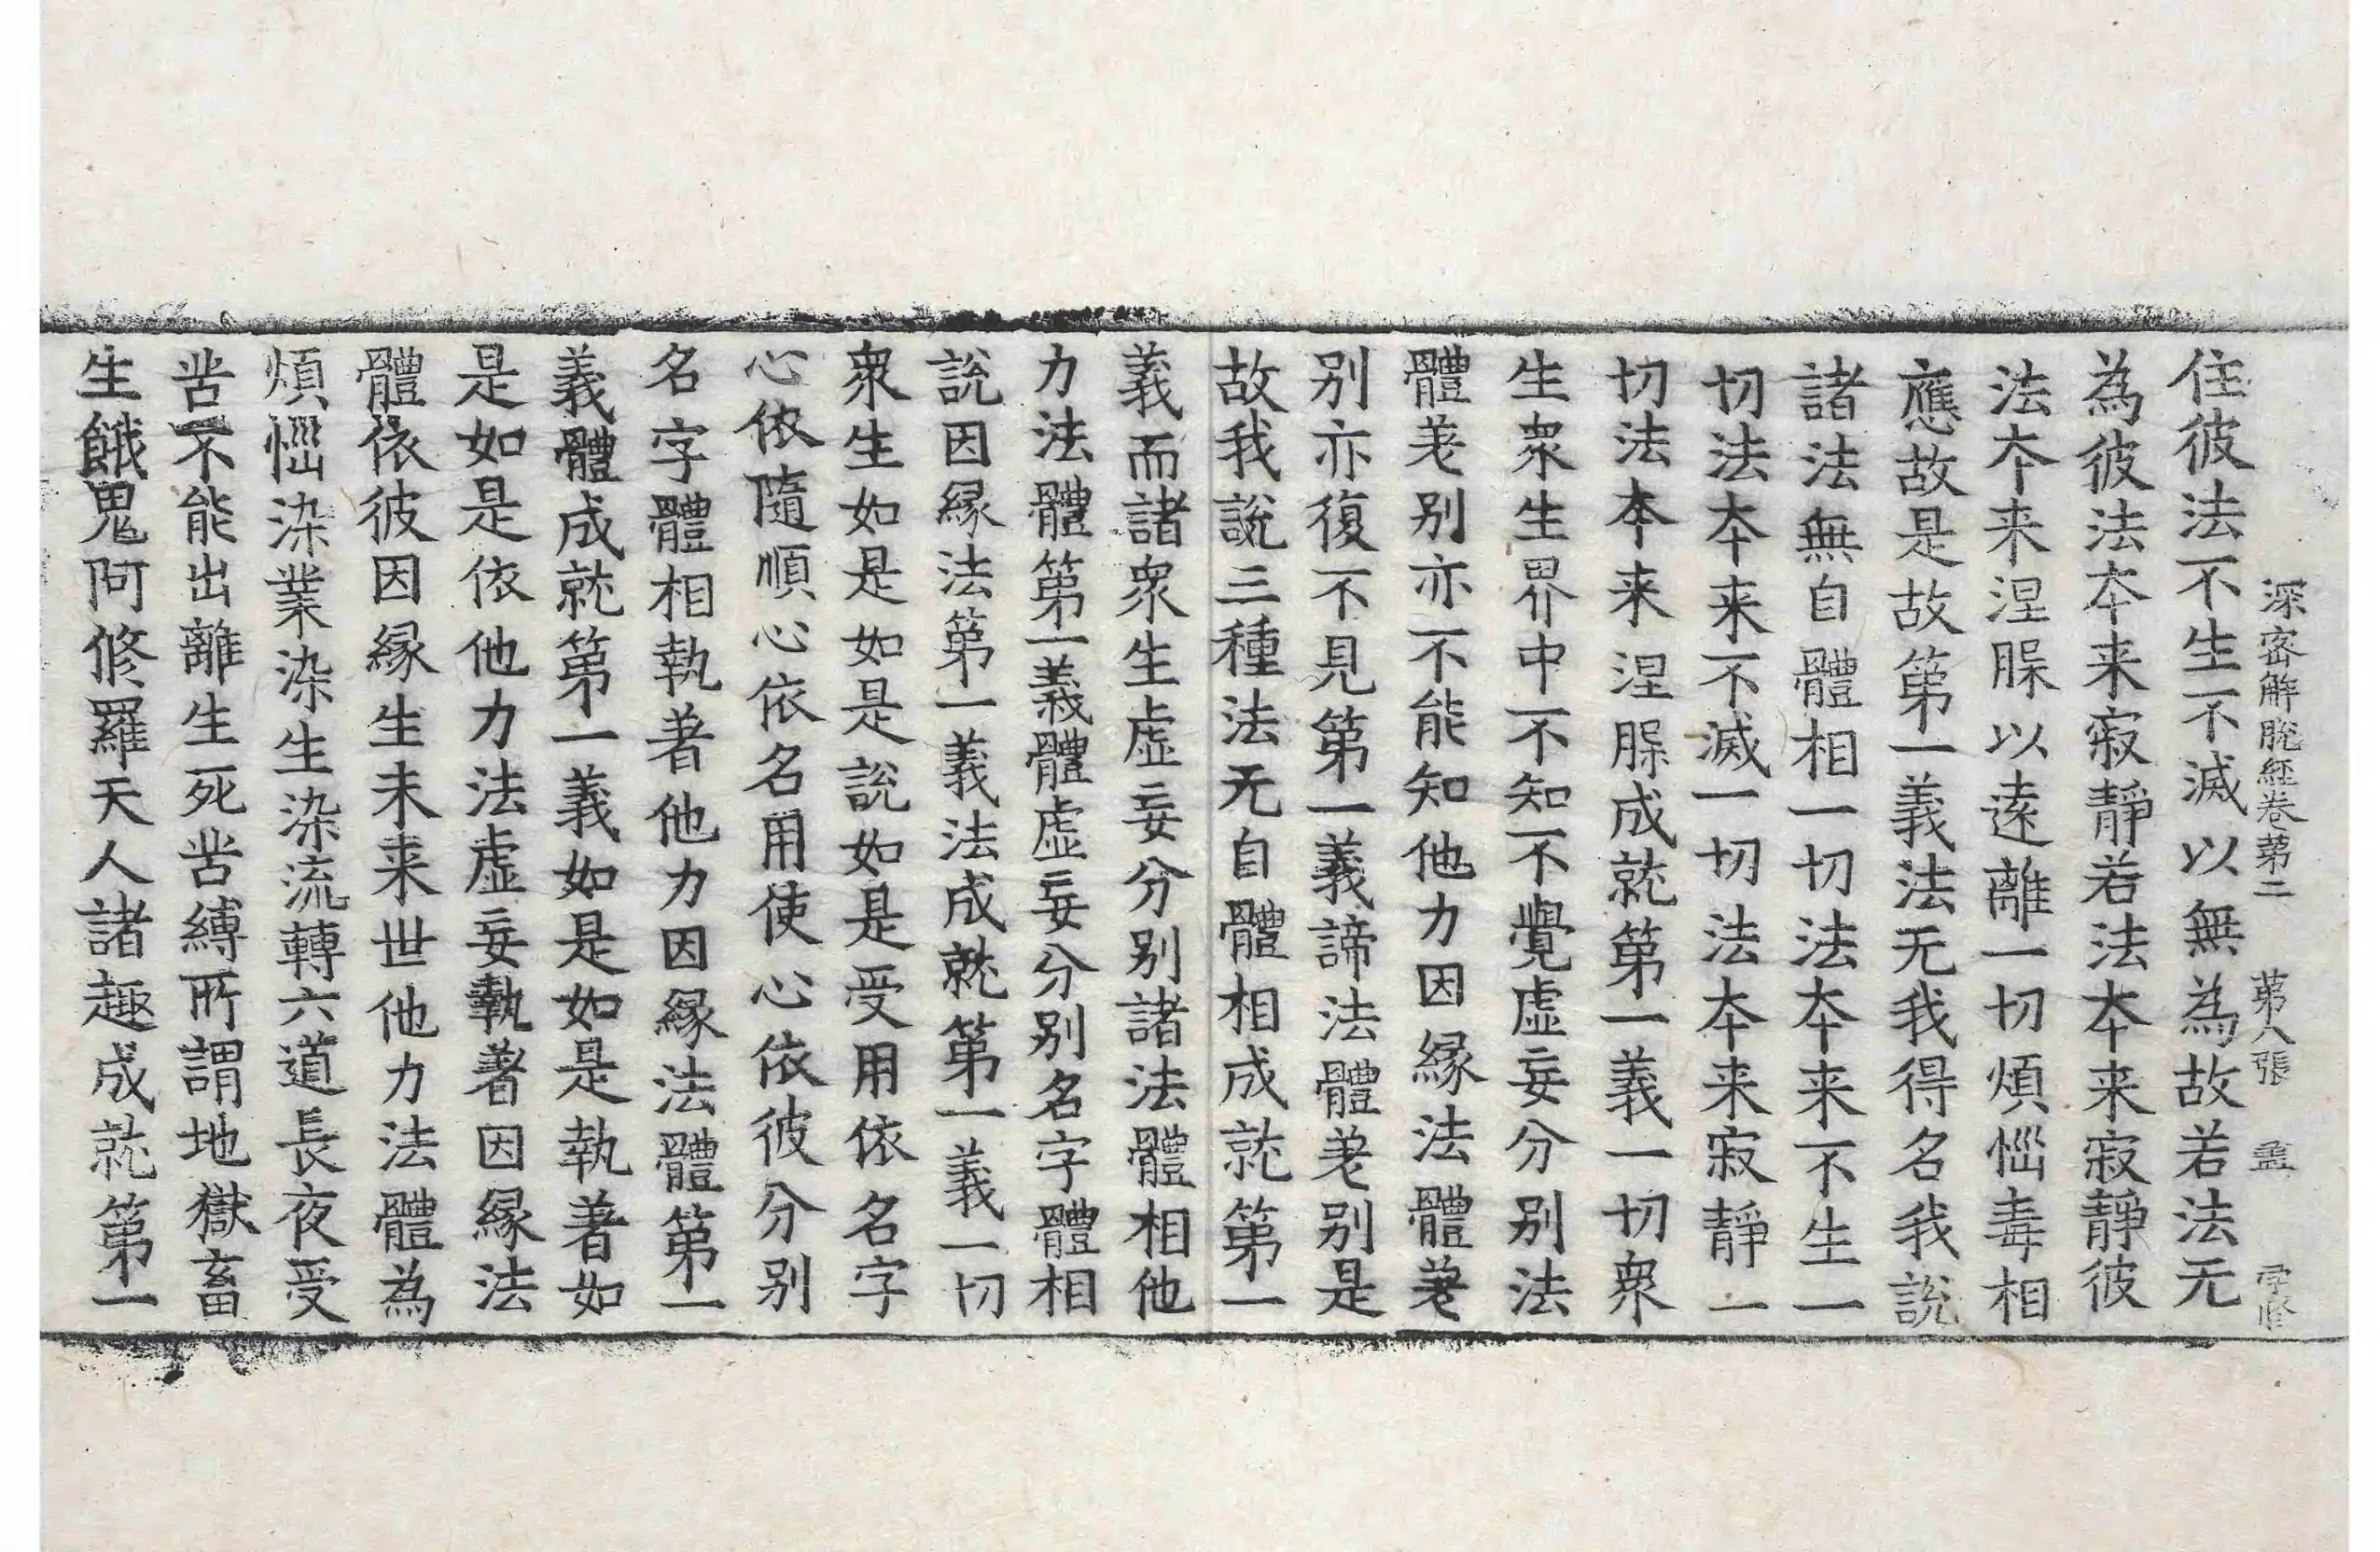 深密解脫經卷第二 第八張 盡 字号
住彼法不生不滅以無為故若法无
為彼法夲来寂靜若法夲来寂靜彼
法夲来涅槃以遠離一切煩惱毒相
應故是故第一義法无我得名我說
諸法無自體相一切法夲来不生一
切法夲来不滅一切法夲来寂靜一
切法夲来涅槃成就第一義一切衆
生衆生界中不知不覺虛妄分别法
體差别亦不能知他力因緣法體差
别亦復不見第一義諦法體差别是
故我說三種法无自體相成就第一
義而諸衆生虛妄分别諸法體相他
力法體第一義體虛妄分别名字體相
說因緣法第一義法成就第一義一切
衆生如是如是說如是受用依名字
心依隨順心依名用使心依彼分别
名字體相執著他力因緣法體第一
義體成就第一義如是如是執著如
是如是依他力法虛妄執著因緣法
體依彼因緣生未来世他力法體為
煩惱染業染生染流轉六道長夜受
苦不能出離生死苦縛所謂地獄畜
生餓鬼阿修羅天人諸趣成就第一